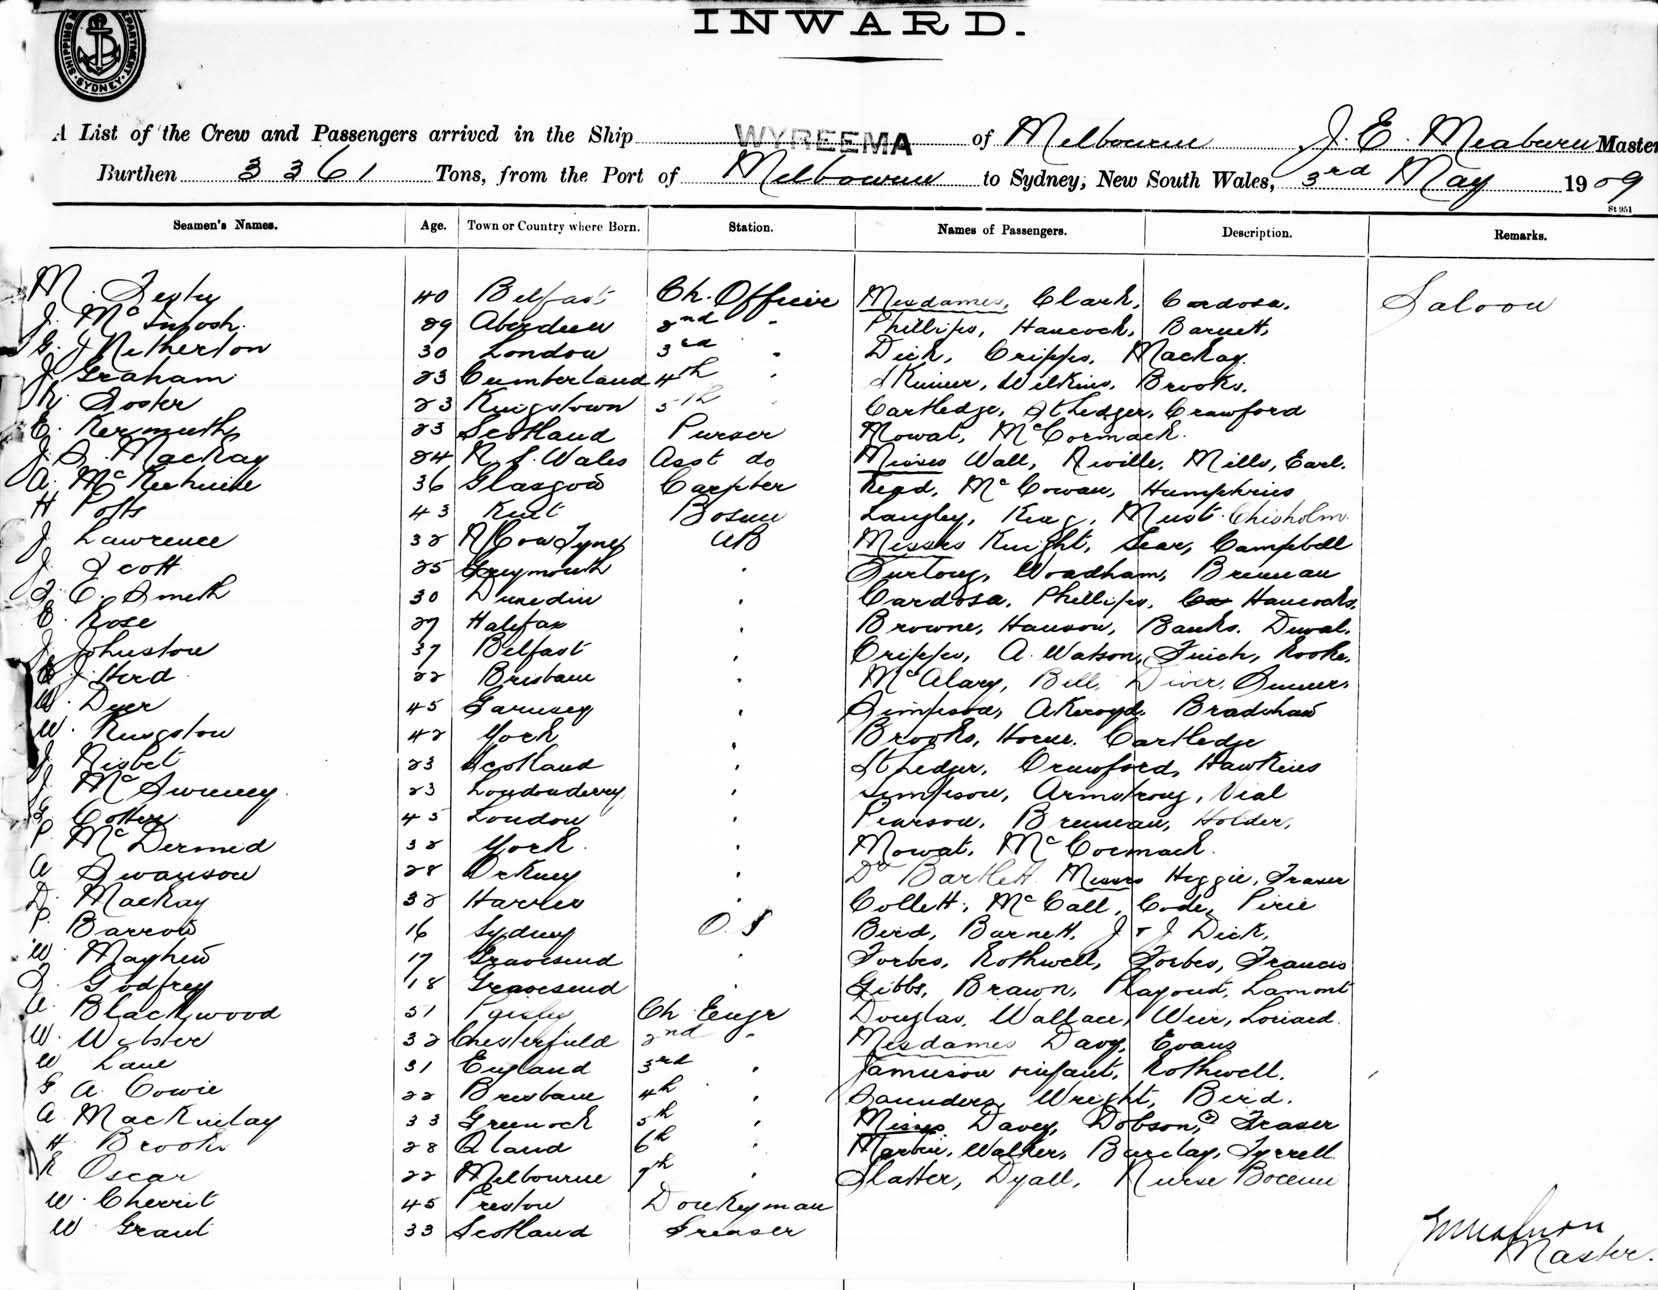 INWARD.
SHIPPING DEPARTMENT SYDNEY
A List of the Crew and Passengers arrived in the Ship WYREEMA of Melbourne J. E. Meaburn Master
Burthen 3361 Tons, from the Port of Melbourne to Sydney, New South Wales, 3rd May 1909
St 951
Seamen's Names. Age. Town or Country where Born. Station. Names of Passengers. Description. Remarks.
M. 40 Belfast Ch. Officer Mesdames, Clark, Cardosa. Saloon
J. McIntosh. 29 Aberdeen 2nd " Phillips, Hancock, Barnett,
G. J Netherton 30 London 3rd " Dick, Cripps, Mackay.
J Graham 23 Cumberland 4th " Skinner, Wilkins, Brooks.
R. Foster 23 Kingstown 5th " Cartledge, St Ledger, Crawford
E. Kermuth 23 Scotland Purser Mowat, McCormack.
J. S. Mackay 24 N. S. Wales Asst do Misses Wall, Neville, Mills, Earl.
A. McKechnie 36 Glasgow Carpter Read, McCowan, Humphries
H Potts 43 Kent Bosun Langley, King, Must. Chisholm.
J. Lawrence 32 N Cow Tyne AB Messrs Knight, Sear, Campbell
J. Scott 25 Greymouth " Furlong, Woadham, Brennan
F. E. Smith 30 Dunedin " Cardosa, Phillips, Hancocks.
E. Rose 27 Halifax " Browne, Hanson, Banks. Duval.
J. Johnston 37 Belfast " Cripps, A. Watson, Finch, Rooke.
J. Herd 22 Brisbane " McAlary, Bell, Diver,
W. Dyer 45 Garnsey " Simpson, Akeroyd, Bradshaw
W. Kingston 42 York " Brooks, Horne. Cartledge
J. Nisbet 23 Scotland " St Ledger, Crawford, Hawkins
J. McSweeney. 23 Londonderry " Simpson, Armstrong, Vial
Cotter 45 London " Pearson, Brennan, Holder,
P. McDermid 32 York. " Mowat, McCormack.
A Swanson 28 Orkney " Dr Bartlett Messrs Heggie, Fraser
D. Mackay 32 Harris " Collett, McCall, Code, Pirie
P. Barrow 16 Sydney O. S Bird, Barnett, J & J Dick,
W. Mayhew 17 Gravesend " Forbes, Rothwell, Forbes, Francis
Godfrey 18 Gravesend " Gibbs, Brawn, Playoust, Lamont
Blackwood 51 Paisley Ch. Engr Douglas, Wallace, Weir, Loriard.
W. Webster 32 Chesterfield 2nd " Mesdames Davy, Evans
W Lane 31 England 3rd " Jamieson & infant, Rothwell.
G A Cowie 22 Brisbane 4th " Saunders, Wright, Bird.
A. Mackinlay 33 Greenock 5th " Misses Davey, Dobson, (2) Fraser
H. Brooks 28 Aland 6th " Martin, Walker, Barclay, Tyrrell
R Oscar 22 Melbourne 7th " Slatter, Dyall, Nurse
W. Cherrit 45 Preston Donkeyman
W. Grant 33 Scotland Greaser
Master.